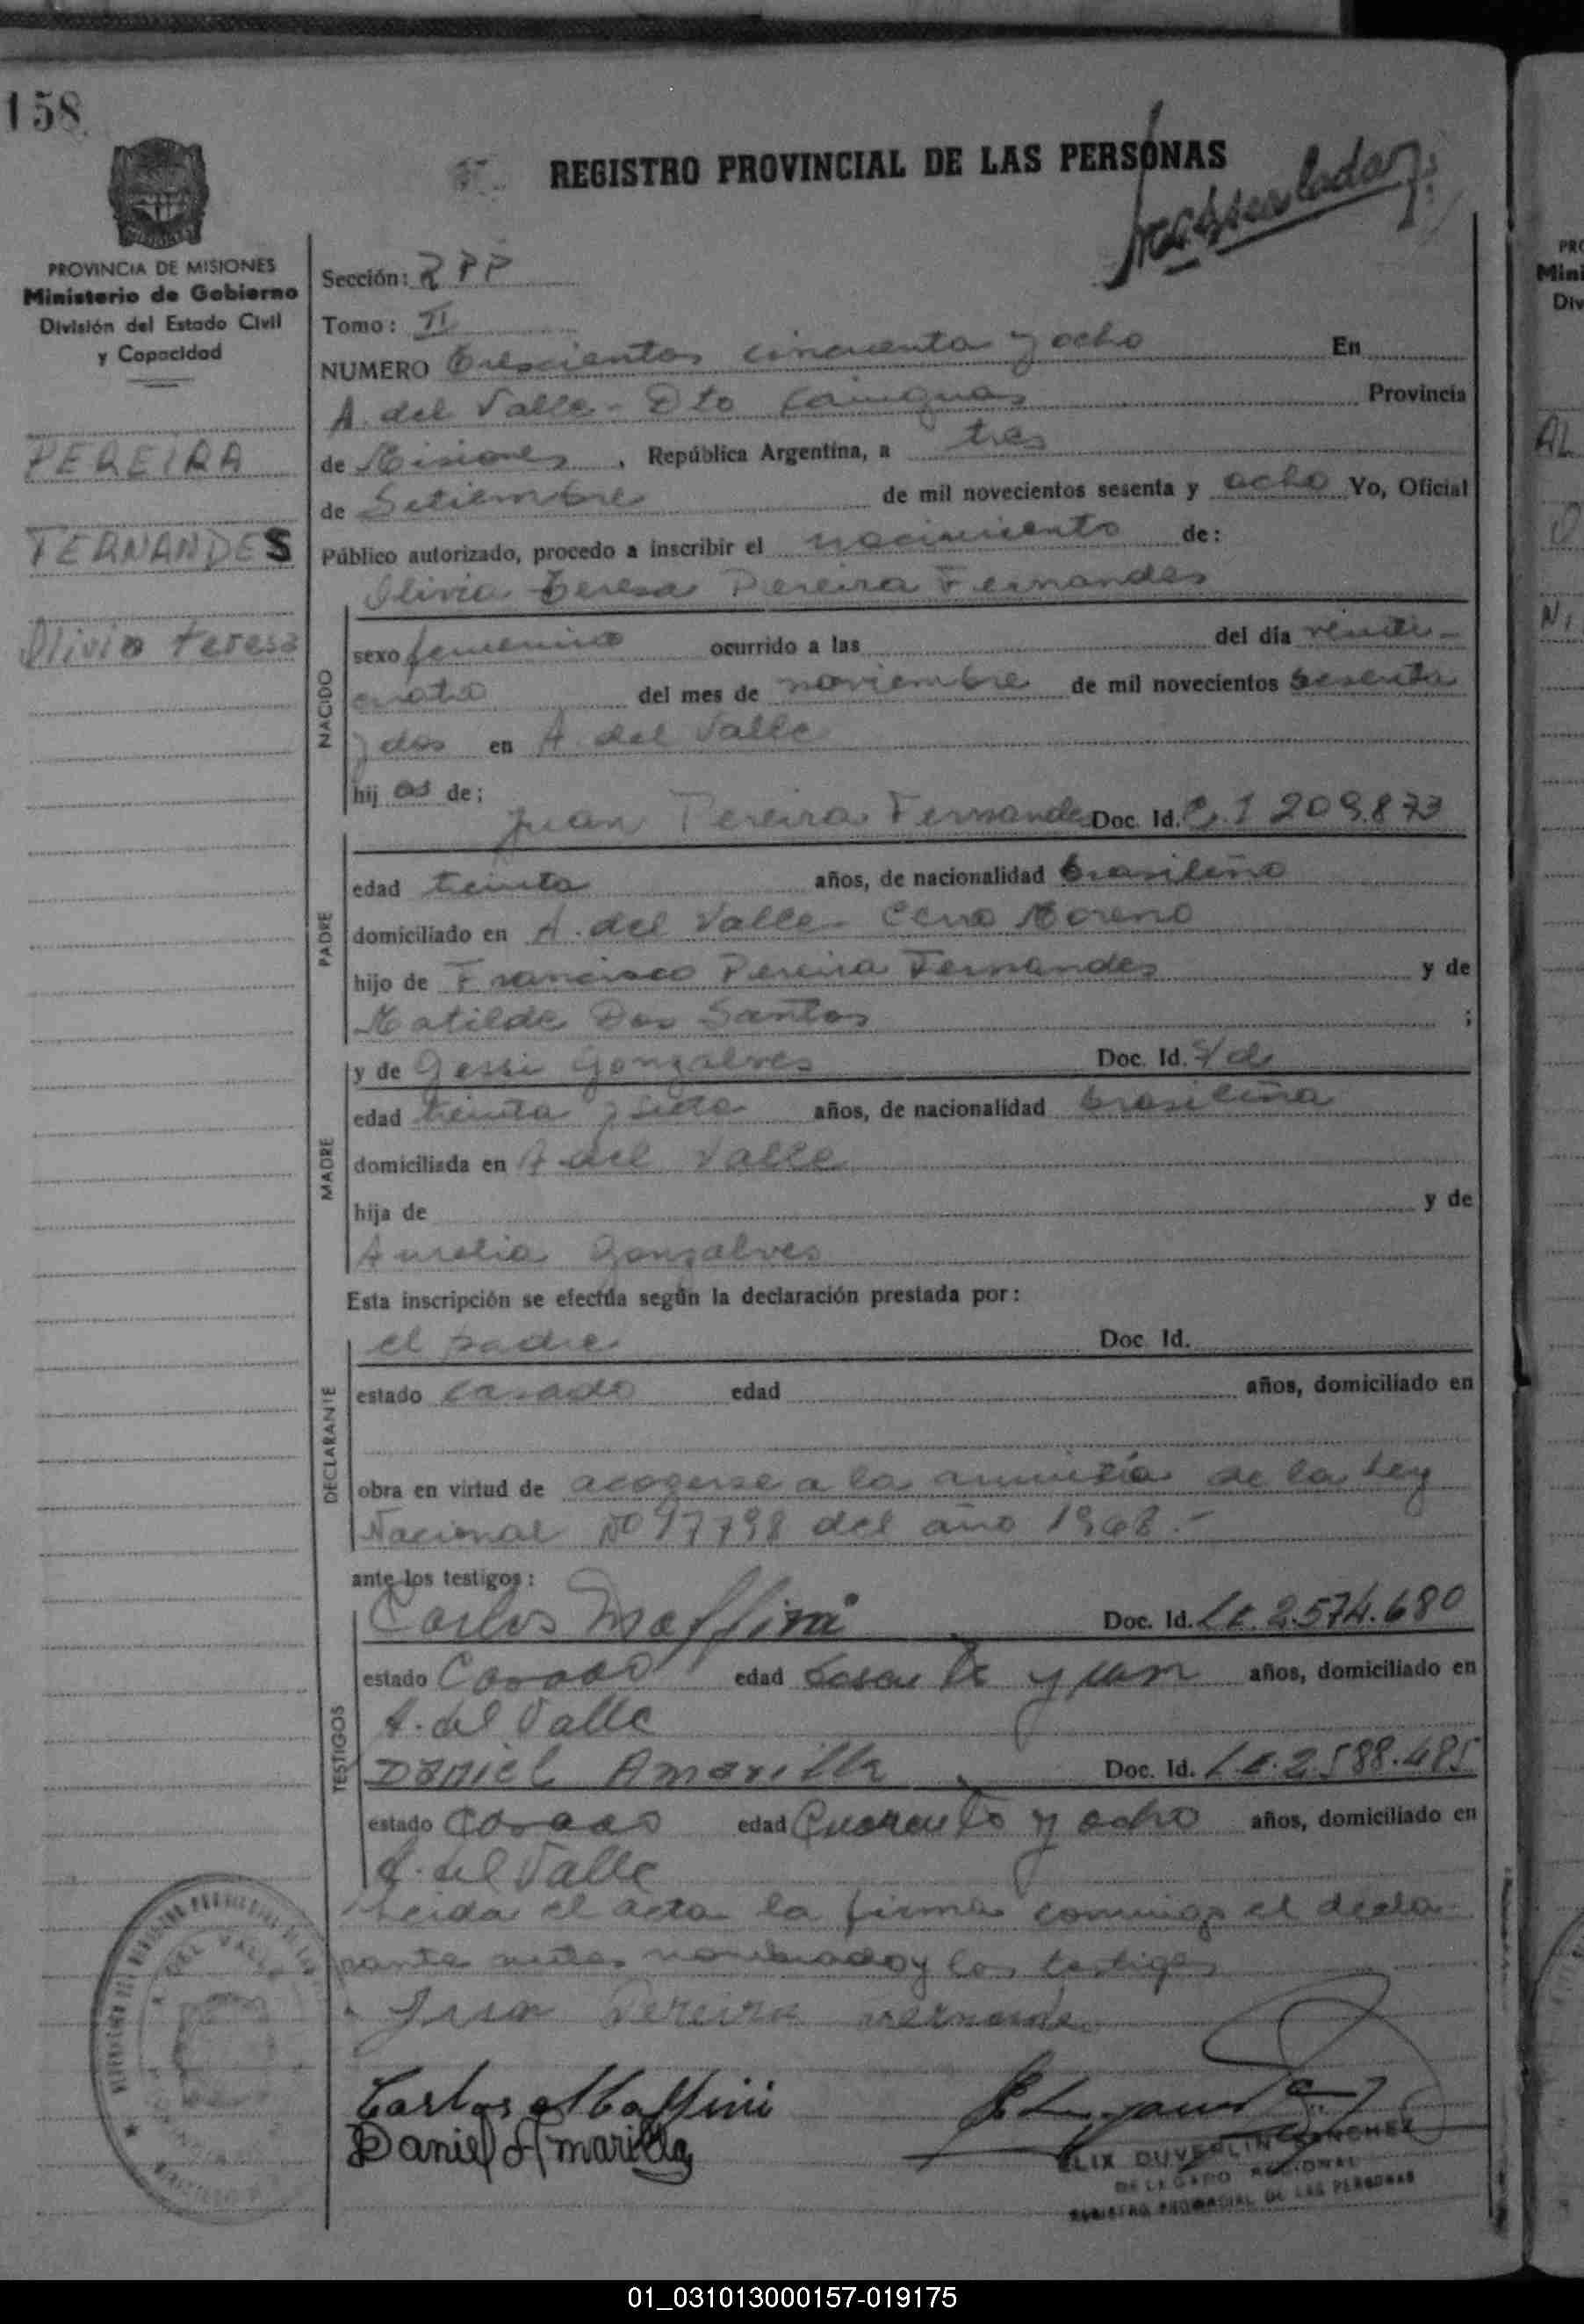 158
REGISTRO PROVINCIAL DE LAS PERSONAS
PROVINCIA DE MISIONES
Ministerio de Gobierno
División del Estado Civil
y Capacidad
PEREIRA
FERNANDES
Olivia Teresa
Sección: RPP
Tomo: II
NUMERO Trescientos cincuenta y ocho En
A. del Valle - Dto Cainguas Provincia
de Misiones, República Argentina, a tres
de Setiembre de mil novecientos sesenta y ocho Yo, Oficial
Público autorizado, procedo a inscribir el nacimiento de:
Olivia Teresa Pereira Fernandes
NACIDO
sexo femenino ocurrido a las del día venti-
cuatro del mes de noviembre de mil novecientos sesenta
y dos en A. del Valle
hij as de;
PADRE
Juan Pereira Fernandes Doc. Id. C.I 209.873
edad treinta años, de nacionalidad brasileño
domiciliado en A. del Valle - Cerro Moreno
hijo de Francisco Pereira Fernandes y de
Matilde Dos Santos ;
MADRE
y de Gessi Gonzalves Doc. Id.
edad treinta y siete años, de nacionalidad brasileña
domiciliada en A. del Valle
hija de y de
Aurelia Gonzalves
Esta inscripción se efectúa según la declaración prestada por:
DECLARANTE
el padre Doc. Id.
estado casado edad años, domiciliado en
obra en virtud de acogerse a la amnistía de la Ley
Nacional Nº 17798 del año 1968.-
ante los testigos:
TESTIGOS
Carlos Maffini Doc. Id. L.E. 2.574.680
estado Casado edad Sesenta y un años, domiciliado en
A. del Valle
Daniel Amarilla Doc. Id. L.E. 2.588.485
estado Casado edad Cuarenta y ocho años, domiciliado en
A. del Valle
Leida el acta la firma conmigo el decla-
rante antes nombrado y los testigos
Juan Pereira Fernandes
Carlos Maffini
Daniel Amarilla
FELIX DUVERLIN SANCHEZ
DELEGADO REGIONAL
REGISTRO PROVINCIAL DE LAS PERSONAS
01_031013000157-019175